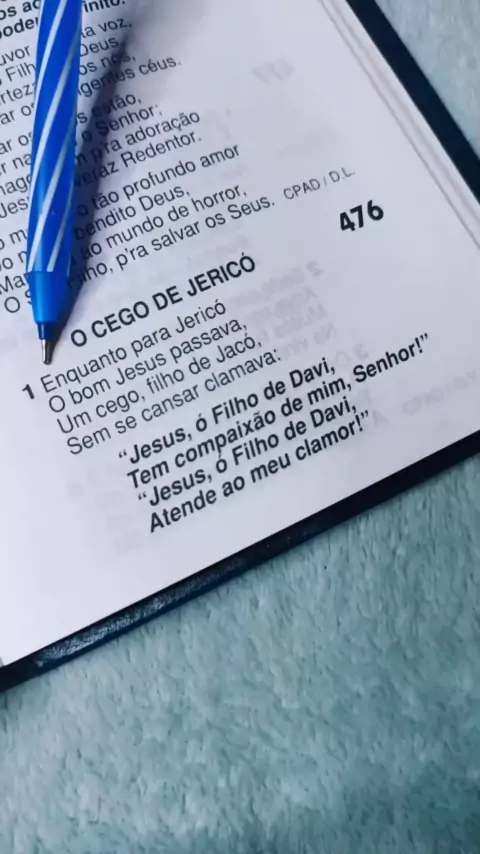 poder
uvor
a voz,
Filh
Deus
os nós,
gentes céus.
estão,
o Senhor;
p'ra adoração
eraz Redentor.
o tão profundo amor
endito Deus,
ao mundo de horror,
O S
ilho, p'ra salvar os Seus. CPAD / D.L.
476
O CEGO DE JERICÓ
1 Enquanto para Jericó
O bom Jesus passava,
Um cego, filho de Jacó,
Sem se cansar clamava:
“Jesus, ó Filho de Davi,
Tem compaixão de mim, Senhor!”
“Jesus, ó Filho de Davi,
Atende ao meu clamor!”